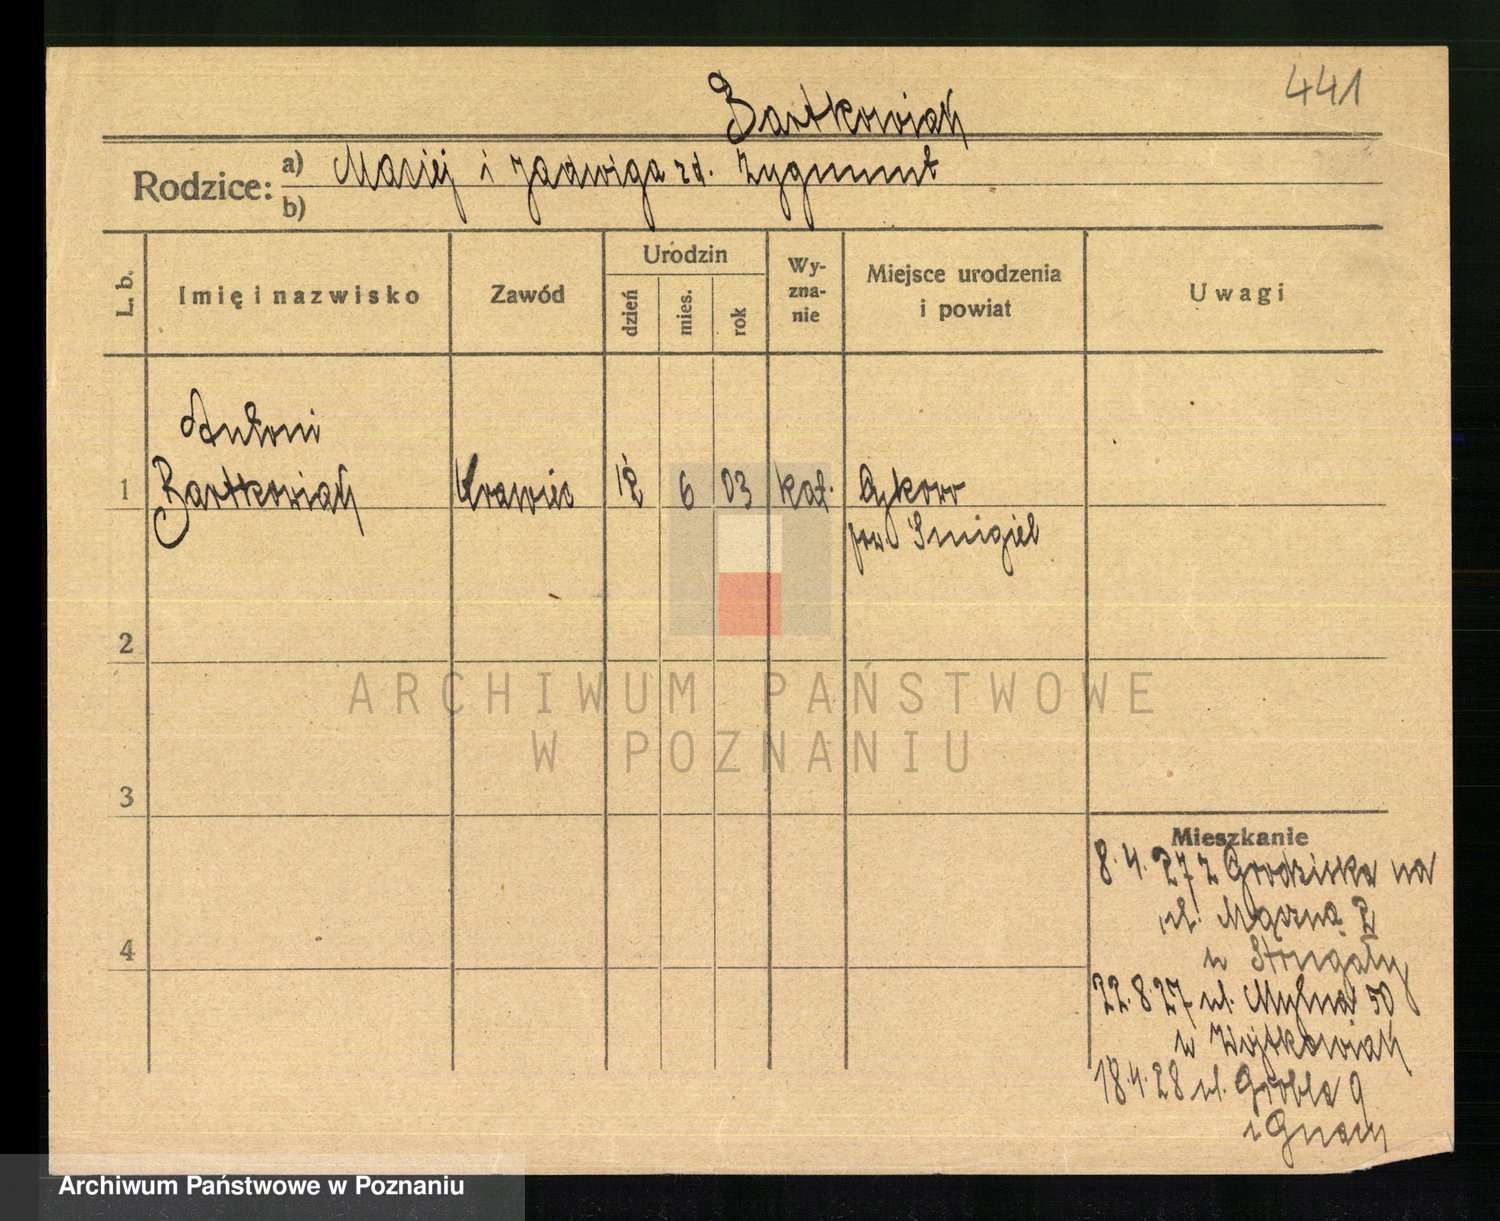 441
Bartkowiak
Rodzice: a) Maciej i Jadwiga zd. Zygmunt
b)
L. b.
Imię i nazwisko
Zawód
Urodzin
dzień
mies.
rok
Wy-
zna-
nie
Miejsce urodzenia
i powiat
Uwagi
Antoni
1 Bartkowiak Krawiec 12 6 03 kat.
pow. Śmigiel
2
3
4
ARCHIWUM PAŃSTWOWE
W POZNANIU
Mieszkanie
8.4.27 z Grodziska na
ul. Mączną 2
u Strugały
22.8.27 ul. Młyńska 50
u Wojtkowiak
18.4.28 ul. Grobla 9
Archiwum Państwowe w Poznaniu